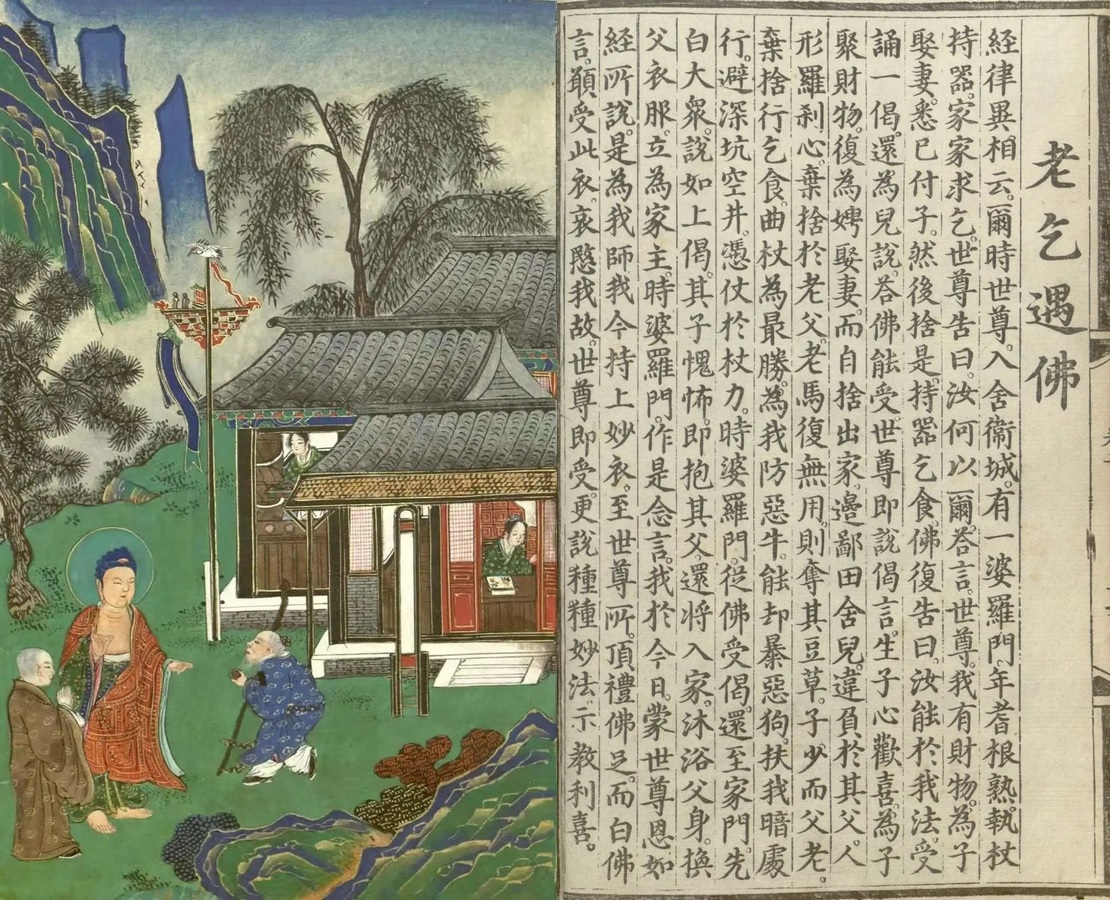 老乞遇佛
經律異相云。爾時世尊。入舍衞城。有一婆羅門。年耆根熟。執杖
持器。家家求乞。世尊告曰。汝何以爾。荅言。世尊。我有財物。為子
娶妻。悉已付子。然後捨是。持器乞食。佛復告曰。汝能於我法。受
誦一偈。還為兒說。荅佛能受。世尊即說偈言。生子心歡喜。為子
聚財物。復為娉娶妻。而自捨出家。邊鄙田舍兒。違負於其父。人
形羅刹心。棄捨於老父。老馬復無用。則奪其豆草。子少而父老。
棄捨行乞食。曲杖為最勝。為我防惡牛。能却暴惡狗。扶我暗處
行。避深坑空井。憑仗於杖力。時婆羅門。從佛受偈。還至家門。先
白大眾。說如上偈。其子愧怖。即抱其父。還將入家。沐浴父身。換
父衣服。立為家主。時婆羅門。作是念言。我於今日。蒙世尊恩。如
經所說。是為我師。我今持上妙衣。至世尊所。頂禮佛足。而白佛
言。願受此衣。哀愍我故。世尊即受。更說種種妙法。示教利喜。